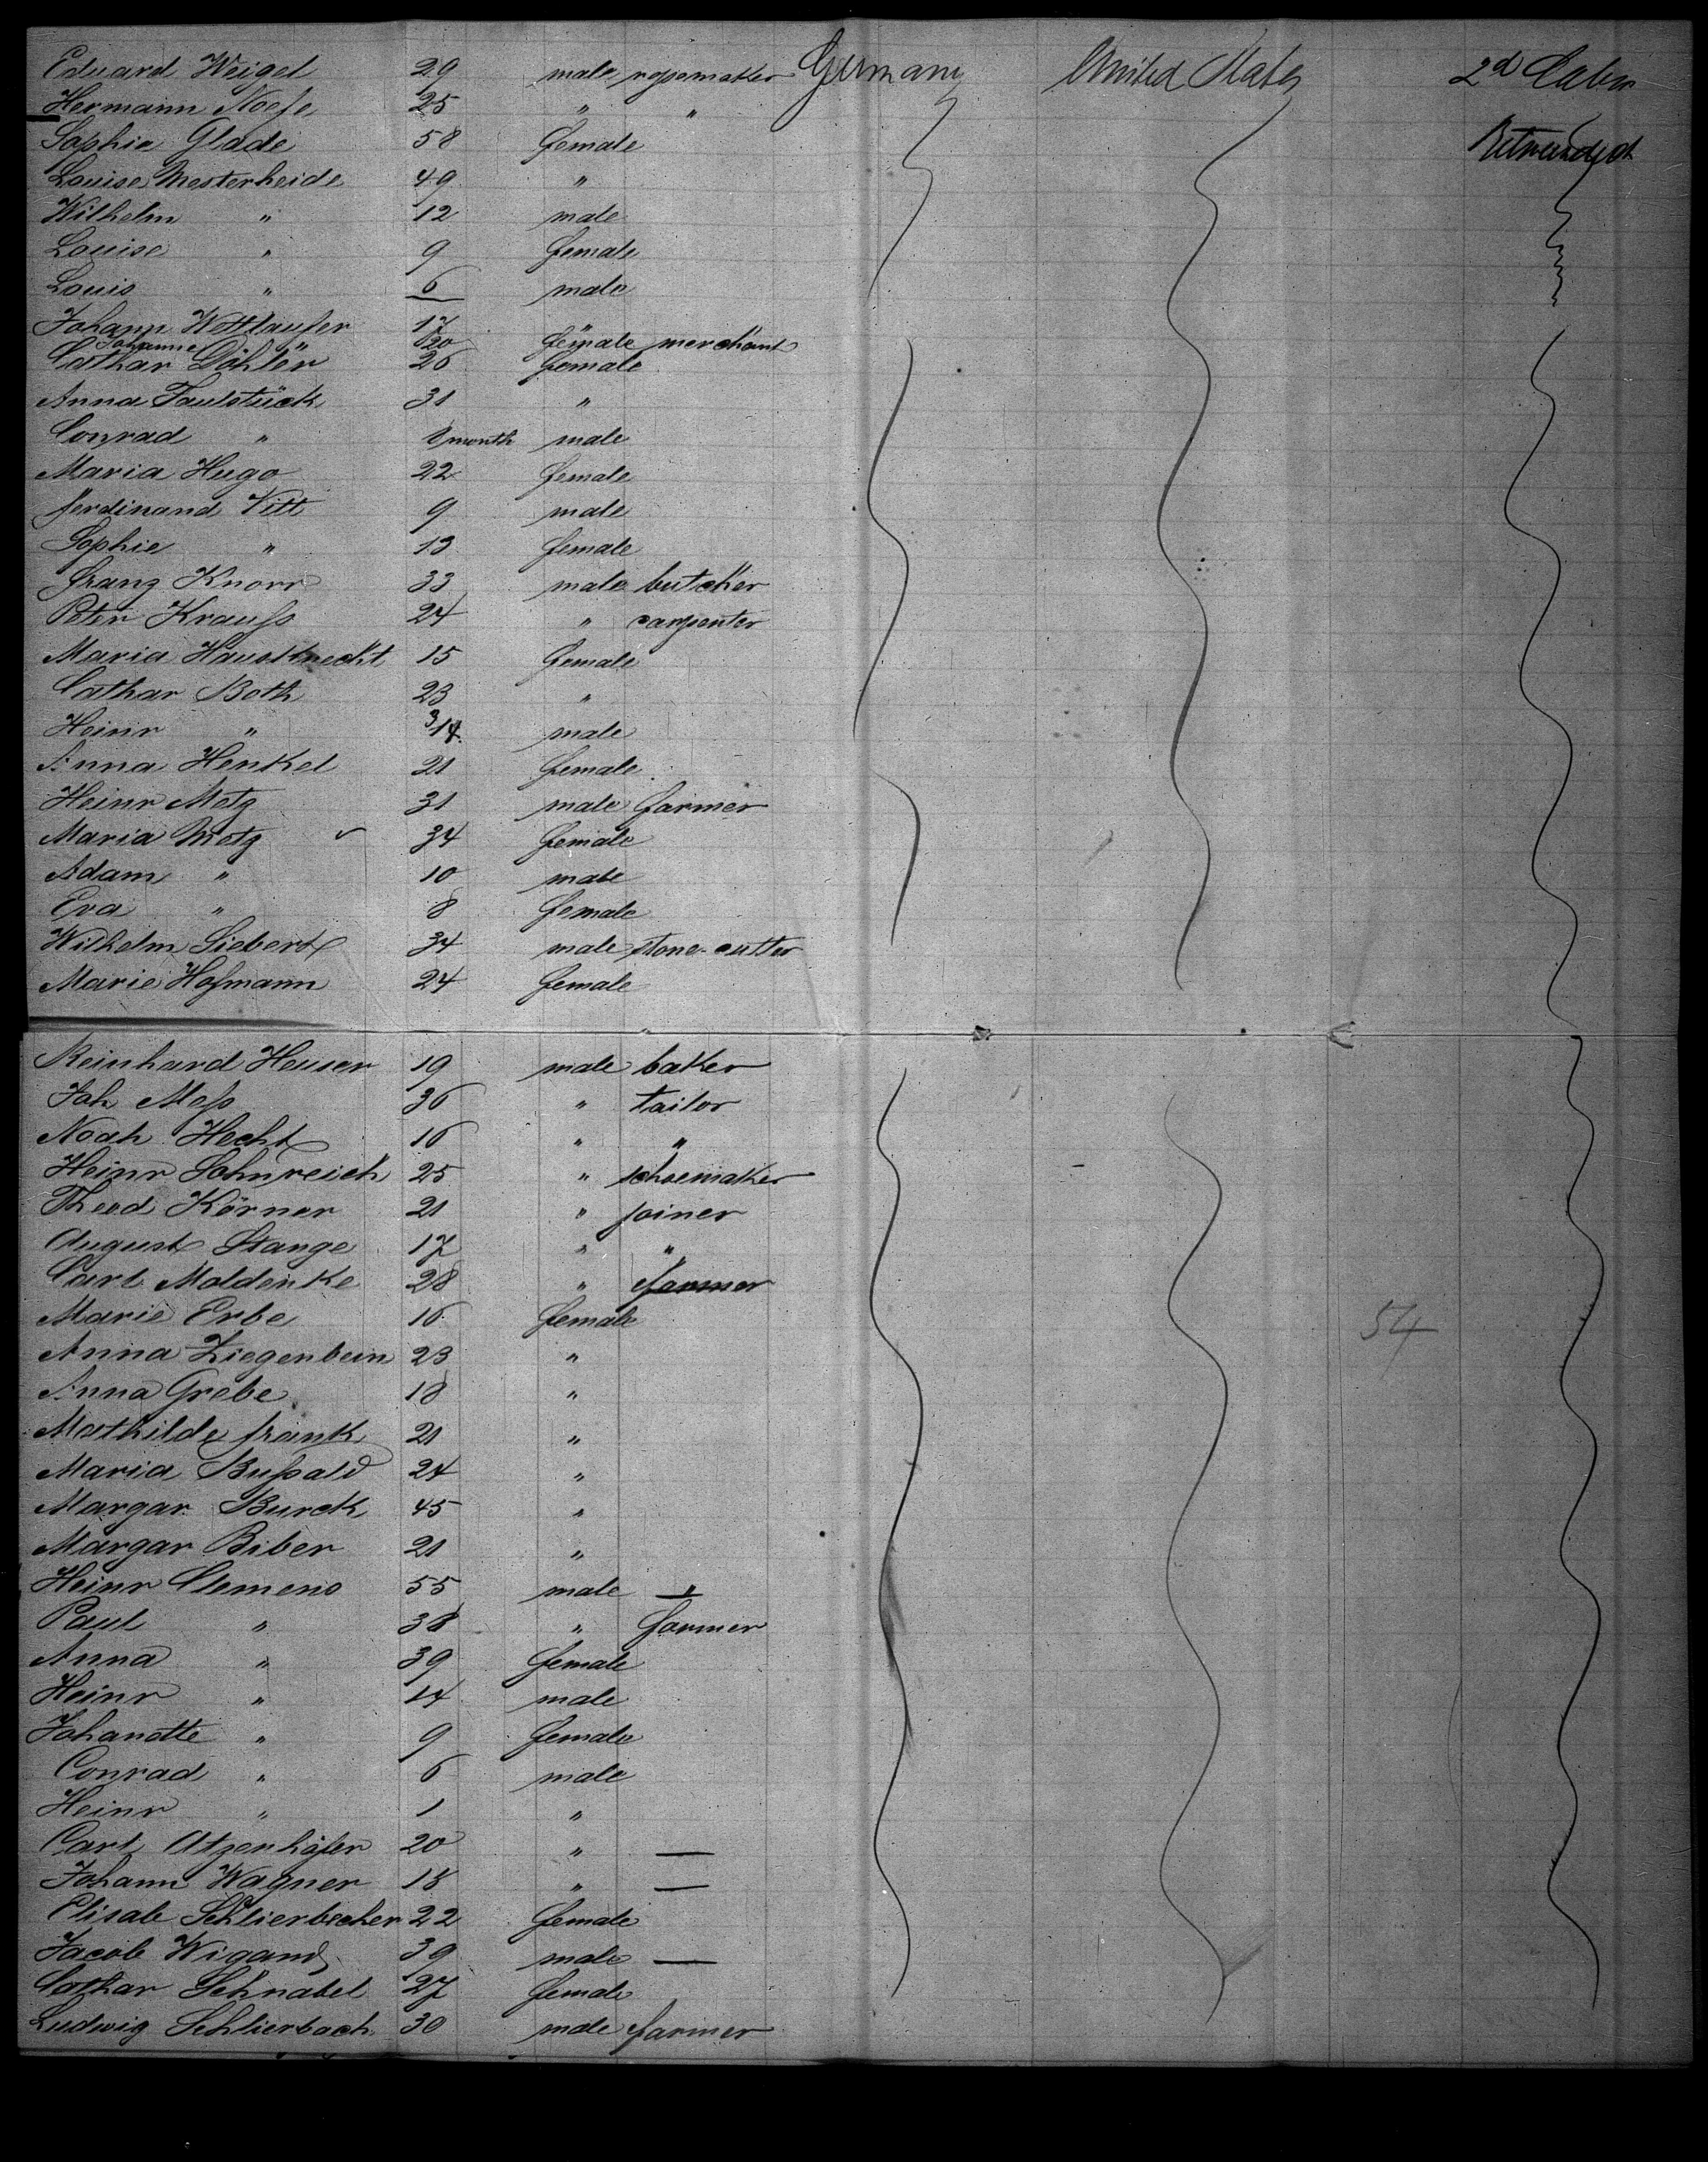 Eduard Weigel 29 male ropemaker Germany United States 2d Cabin
Hermann Noese 25 " "
Sophie Glade 58 female
Louise Mesterheide 49 "
Wilhelm " 12 male
Louise " 9 female
Louis " 6 male
Johann Wottlaufer 17 "
Johanne " 20 female merchant
Cathar Döhler 26 female
Anna Faulstück 31 "
Conrad " 8 month male
Maria Hugo 22 female
Ferdinand Vitt 9 male
Sophie " 13 female
Franz Knorr 33 male butcher
Peter Krauss 24 " carpenter
Maria Hausknecht 15 female
Cathar Both 23 "
Heinr " 3/4 male
Anna Henkel 21 female
Heinr Metz 31 male farmer
Maria Metz 34 female
Adam " 10 male
Eva " 8 female
Wilhelm Siebert 34 male stone-cutter
Marie Hofmann 24 female
Reinhard Heuser 19 male baker
Joh Mess 36 " tailor
Noah Hecht 16 " "
Heinr Sohnreich 25 " schoemaker
Theod Körner 21 " joiner
August Stange 17 " "
Carl Moldenke 28 " farmer
Marie Erbe 16 female 54
Anna Ziegenbein 23 "
Anna Grebe 18 "
Mathilde Frank 21 "
Maria Bussald 24 "
Margar Burck 45 "
Margar Biber 21 "
Heinr Clemens 55 male "
Paul " 38 " farmer
Anna " 39 female
Heinr " 14 male
Johanatte " 9 female
Conrad " 6 male
Heinr " 1 "
Carl Atzenhöfer 20 " —
Johann Wagner 18 " —
Elisab Schlierbecher 22 female
Jacob Wigand 39 male —
Cathar Schnabel 27 female
Ludwig Schlierbach 30 male farmer